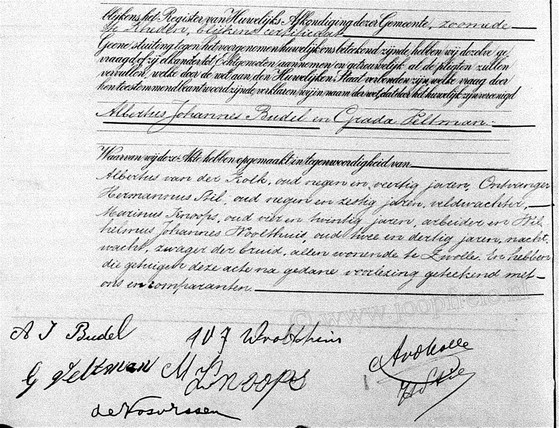 blijkens het Register van Huwelijks Afkondiging dezer Gemeente, zoomede
te Rheden, blijkens certificaat
Geene sluiting tegen het voorgenomen huwelijk ons beteekend zijnde, hebben wij dezelve ge-
vraagd of zij elkander tot Echtgenooten aannemen en getrouwelijk al de pligten zullen
vervullen, welke door de wet aan den Huwelijken Staat verbonden zijn, welke vraag door
hen toestemmend beantwoord zijnde, verklaren wij in naam der wet, dat door het huwelijk zijn vereenigd
Albertus Johannes Budel en Grada Veltman.
Waarvan wij deze Akte hebben opgemaakt in tegenwoordigheid van
Albertus van der Kolk, oud negen en veertig jaren, Ontvanger
Hermannus Bil, oud negen en zestig jaren, veldwachter,
Marinus Knoops, oud vier en twintig jaren, arbeider en Wil-
helmus Johannes Wrolthuis, oud twee en dertig jaren, nacht-
wacht, zwager der bruid, allen wonende te Zwolle. En hebben
die getuigen deze acte na gedane voorlezing geteekend met
ons en comparanten.
A J Budel
G Veltman
M Knoops